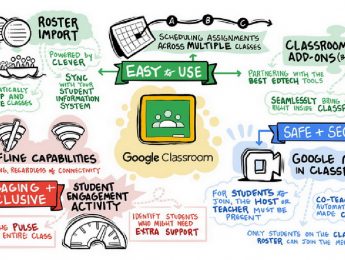 ROSTER
IMPORT
POWERED by
CLEVER
SYNC
WITH YOUR
STUDENT
INFORMATION
SYSTEM
A B C
SCHEDULING ASSIGNMENTS
ACROSS MULTIPLE CLASSES
EASY to USE
CLASSROOM
ADD-ONS
PARTNERING WITH the
BEST EDTECH TOOLS
SEAMLESSLY BRING
Google Classroom
FLINE CAPABILITIES
ING, REGARDLESS of CONNECTIVITY
AGING +
CLUSIVE
PULSE
ENTIRE CLASS
STUDENT
ENGAGEMENT
ACTIVITY
IDENTIFY STUDENTS
WHO MIGHT NEED
EXTRA SUPPORT
SAFE + SEC
GOOGLE M
IN CLASSR
FOR STUDENTS to
JOIN, THE HOST or
TEACHER MUST BE
PRESENT
CO-TEAC
AUTOMAT
MADE CO
ONLY STUDENTS on the CLASS
ROSTER CAN JOIN the ME